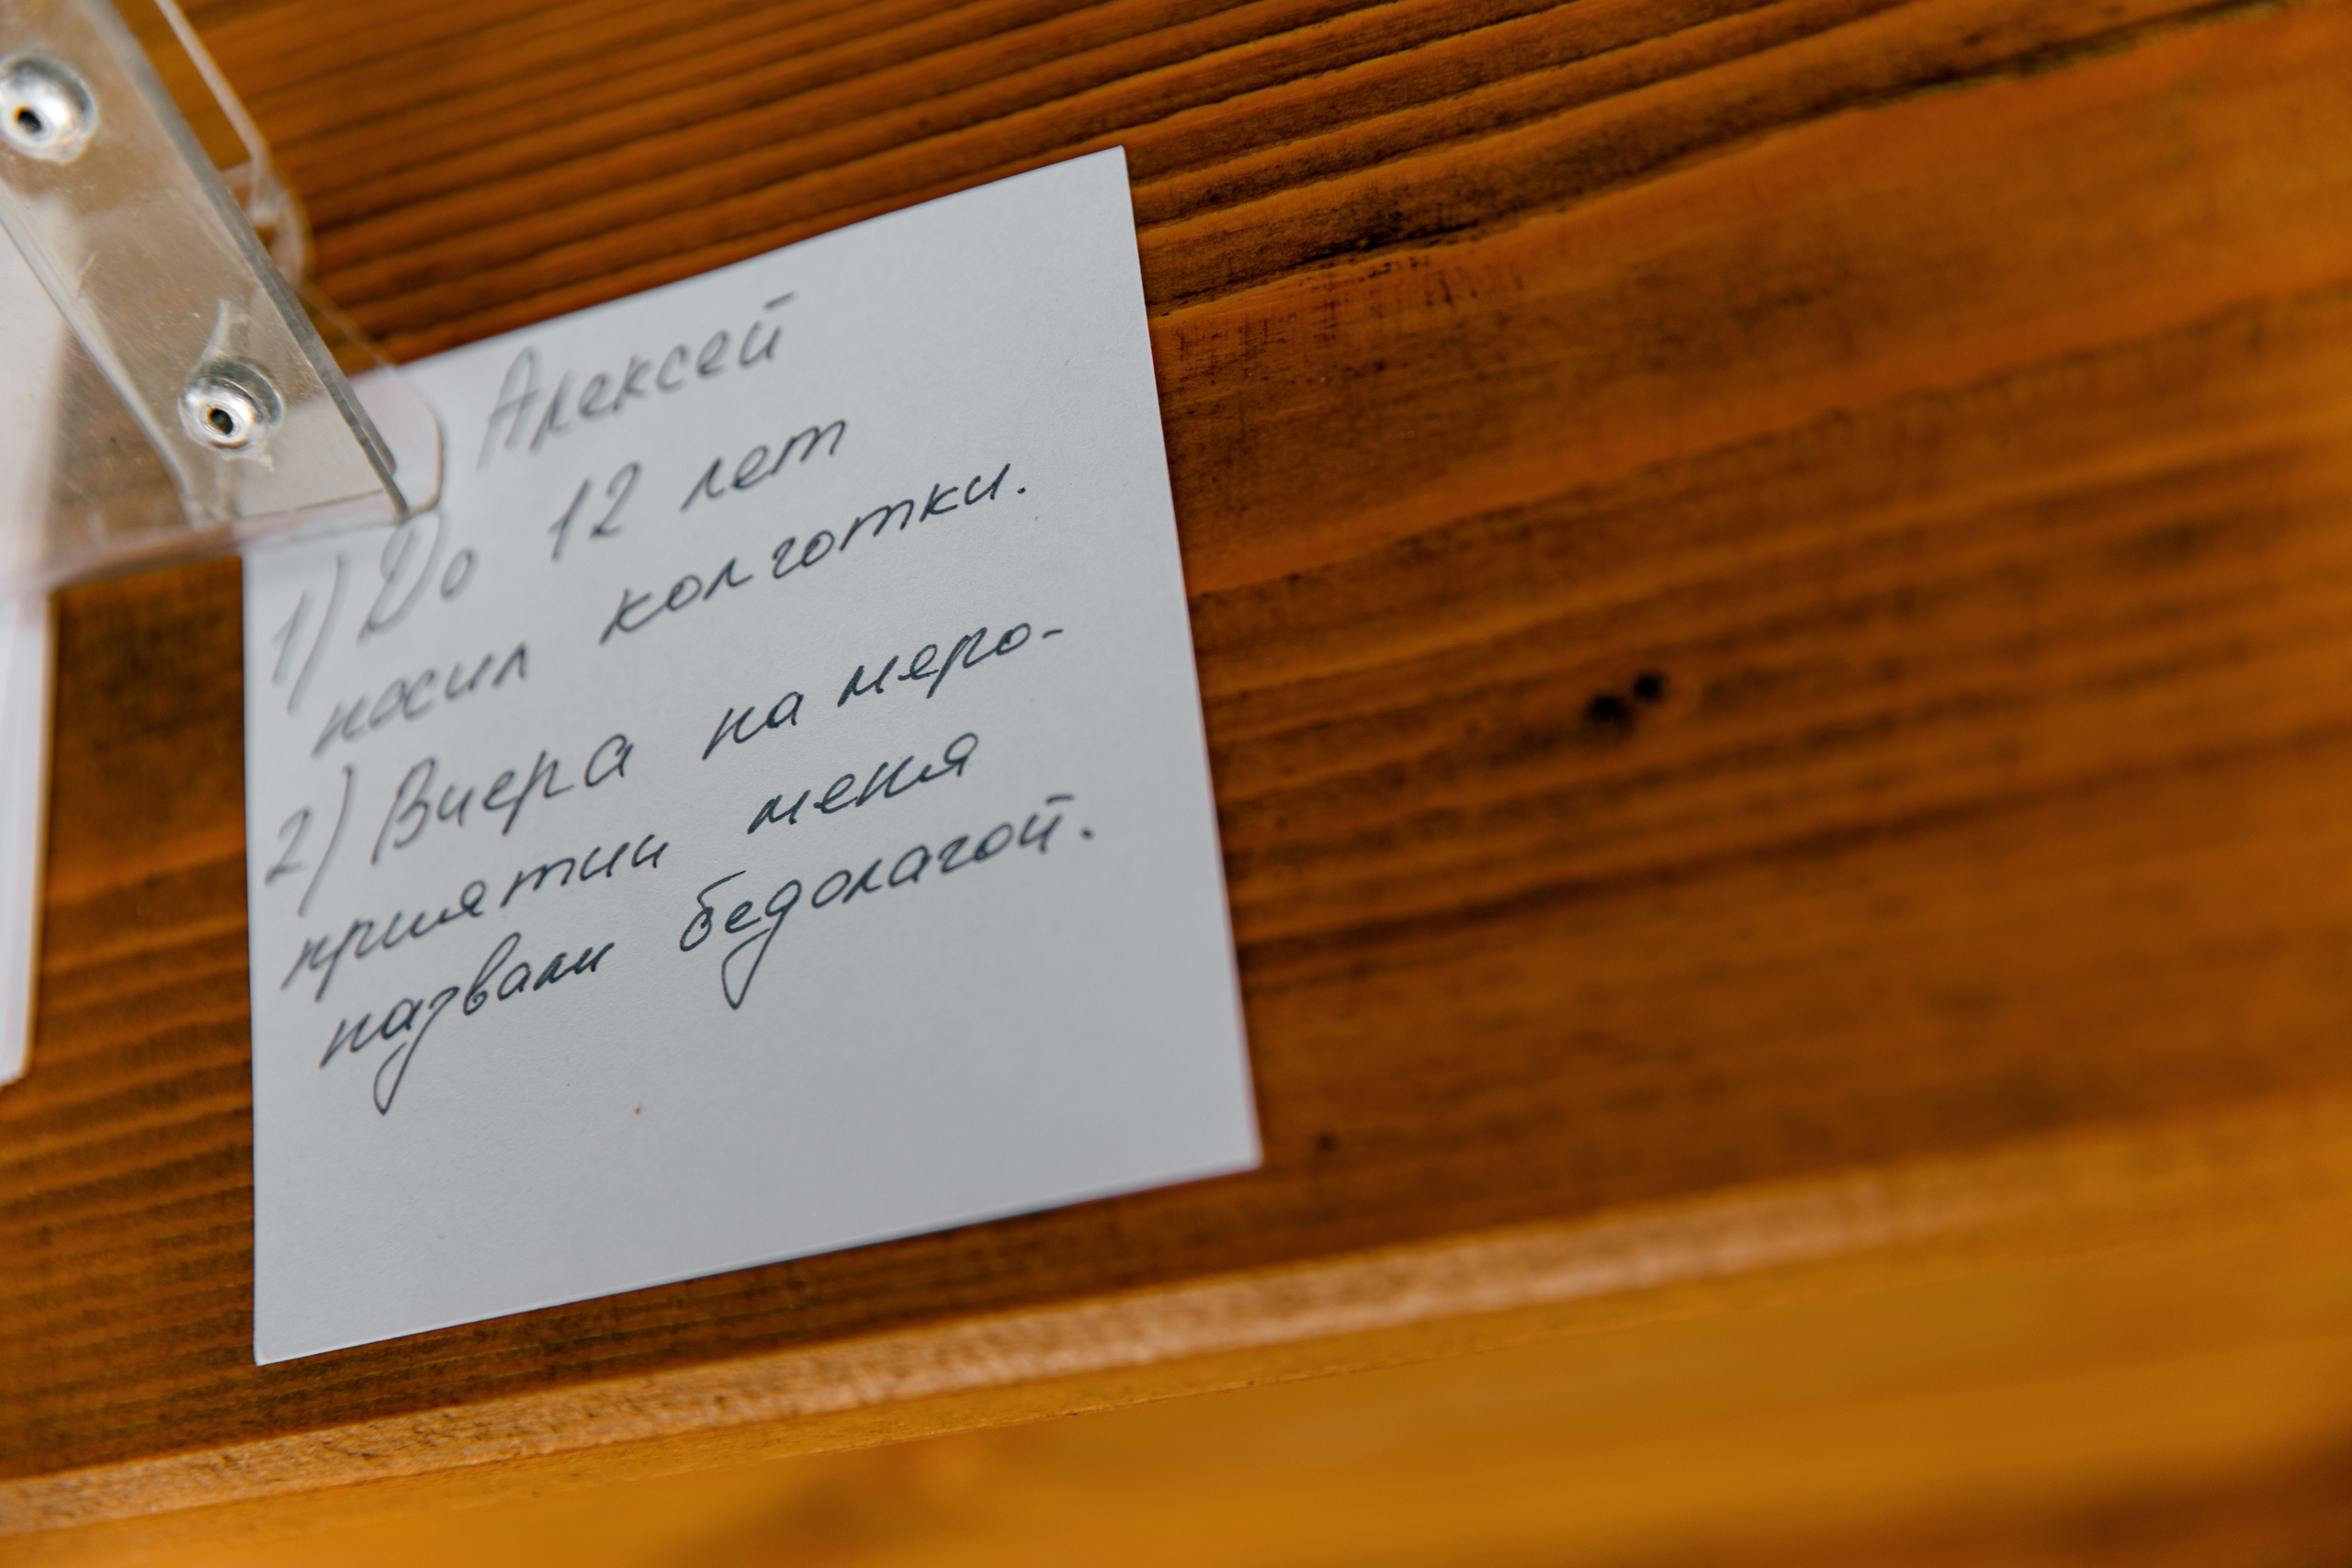 Алексей
1) До 12 лет
носил колготки.
2) Вчера на меро-
приятии меня
назвали бедолагой.